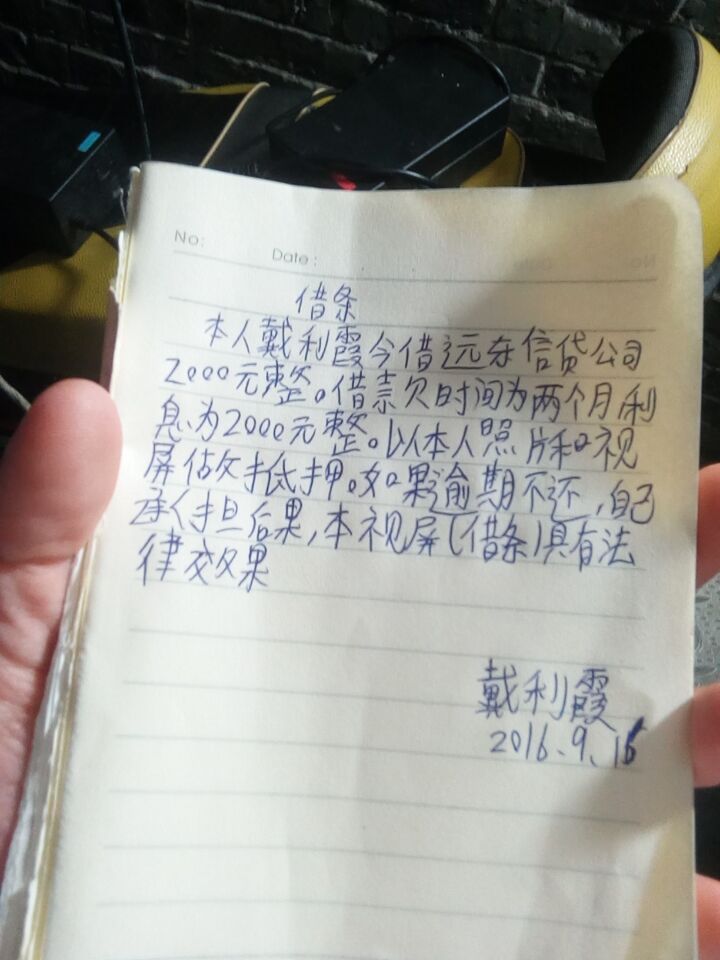 No:
Date:
借条
本人戴利霞今借远东信贷公司
2000元整。借款欠时间为两个月利
息为2000元整。以本人照片和视
屏做抵押。如果逾期不还,自己
承担后果,本视屏(借条)具有法
律效果
戴利霞
2016.9.16